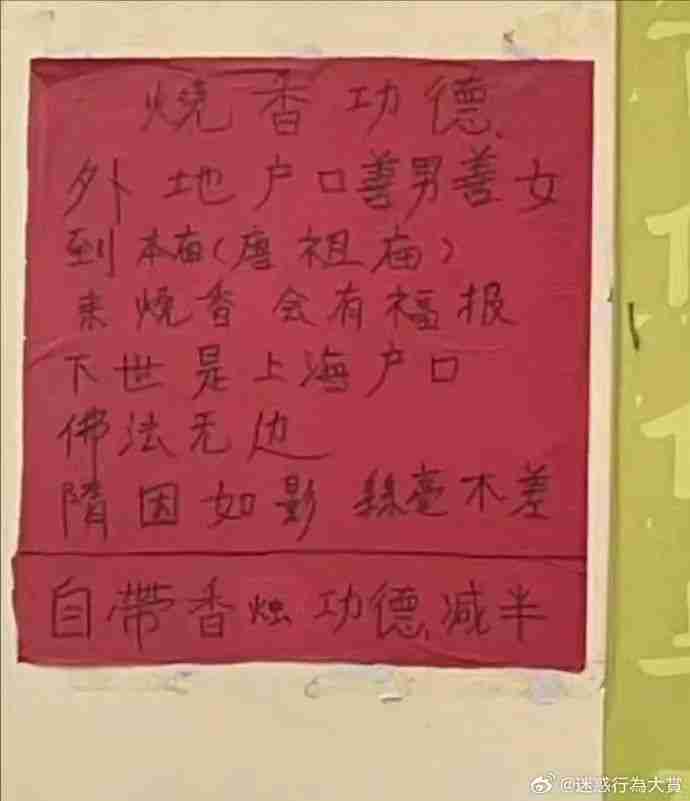 烧香功德
外地户口善男善女
到本庙(唐祖庙)
来烧香会有福报
下世是上海户口
佛法无边
隋因如影 丝毫不差
自带香烛功德减半
@迷惑行為大賞